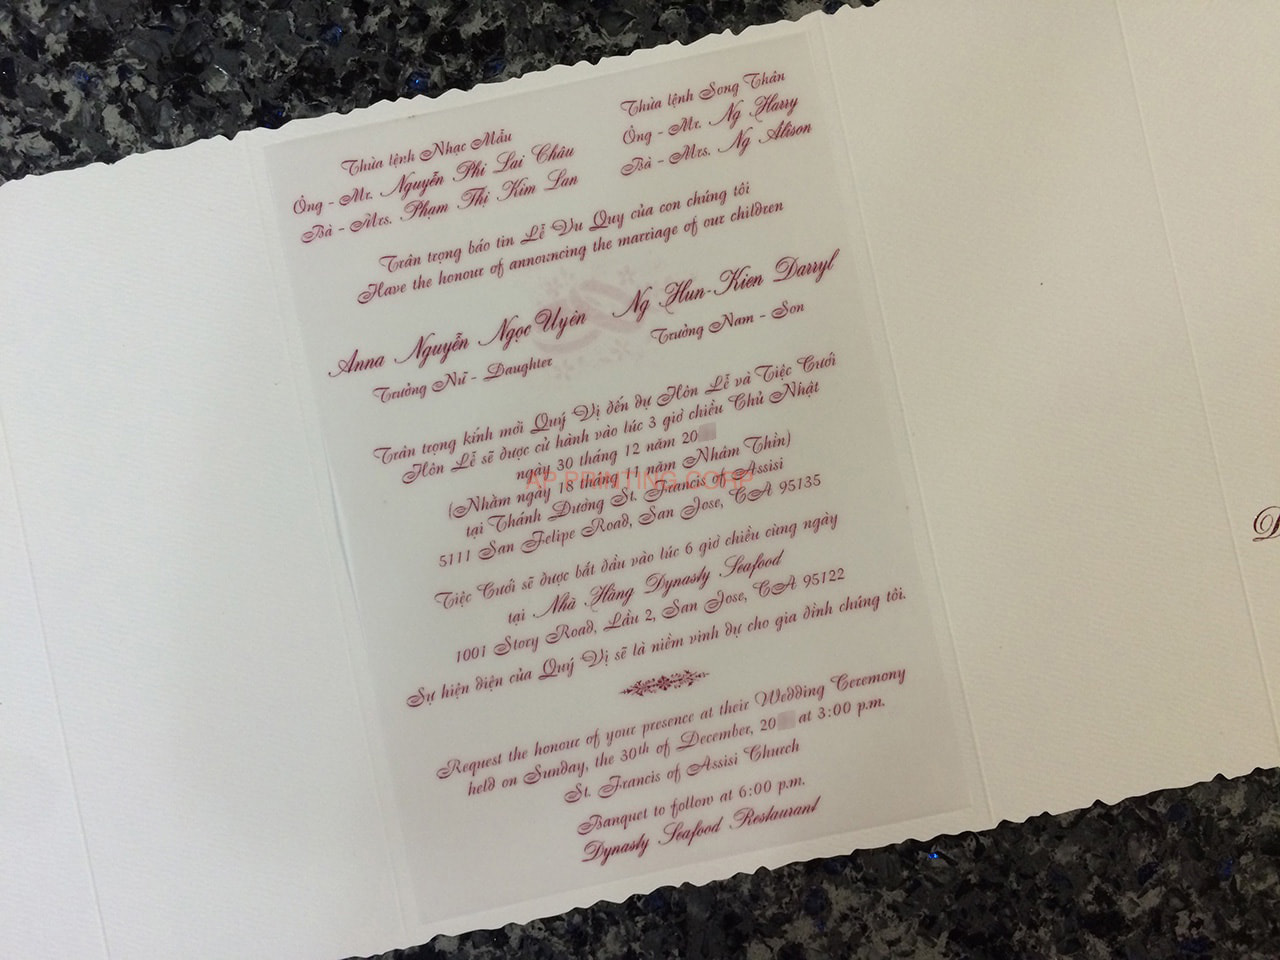 Thừa lệnh Nhạc Mẫu
Ông - Mr. Nguyễn Phi Lai Châu
Bà - Mrs. Phạm Thị Kim Lan
Thừa lệnh Song Thân
Ông - Mr. Ng Harry
Bà - Mrs. Ng Alison
Trân trọng báo tin Lễ Vu Quy của con chúng tôi
Have the honour of announcing the marriage of our children
Anna Nguyễn Ngọc Uyên
Trưởng Nữ - Daughter
Ng Hun-Kien Darryl
Trưởng Nam - Son
Trân trọng kính mời Quý Vị đến dự Hôn Lễ và Tiệc Cưới
Hôn Lễ sẽ được cử hành vào lúc 3 giờ chiều Chủ Nhật
ngày 30 tháng 12 năm 20
(Nhằm ngày 18 tháng 11 năm Nhâm Thìn)
AP PRINTING CORP
tại Thánh Đường St. Francis of Assisi
5111 San Felipe Road, San Jose, CA 95135
Tiệc Cưới sẽ được bắt đầu vào lúc 6 giờ chiều cùng ngày
tại Nhà Hàng Dynasty Seafood
1001 Story Road, Lầu 2, San Jose, CA 95122
Sự hiện diện của Quý Vị sẽ là niềm vinh dự cho gia đình chúng tôi.
Request the honour of your presence at their Wedding Ceremony
held on Sunday, the 30th of December, 20 at 3:00 p.m.
St. Francis of Assisi Church
Banquet to follow at 6:00 p.m.
Dynasty Seafood Restaurant